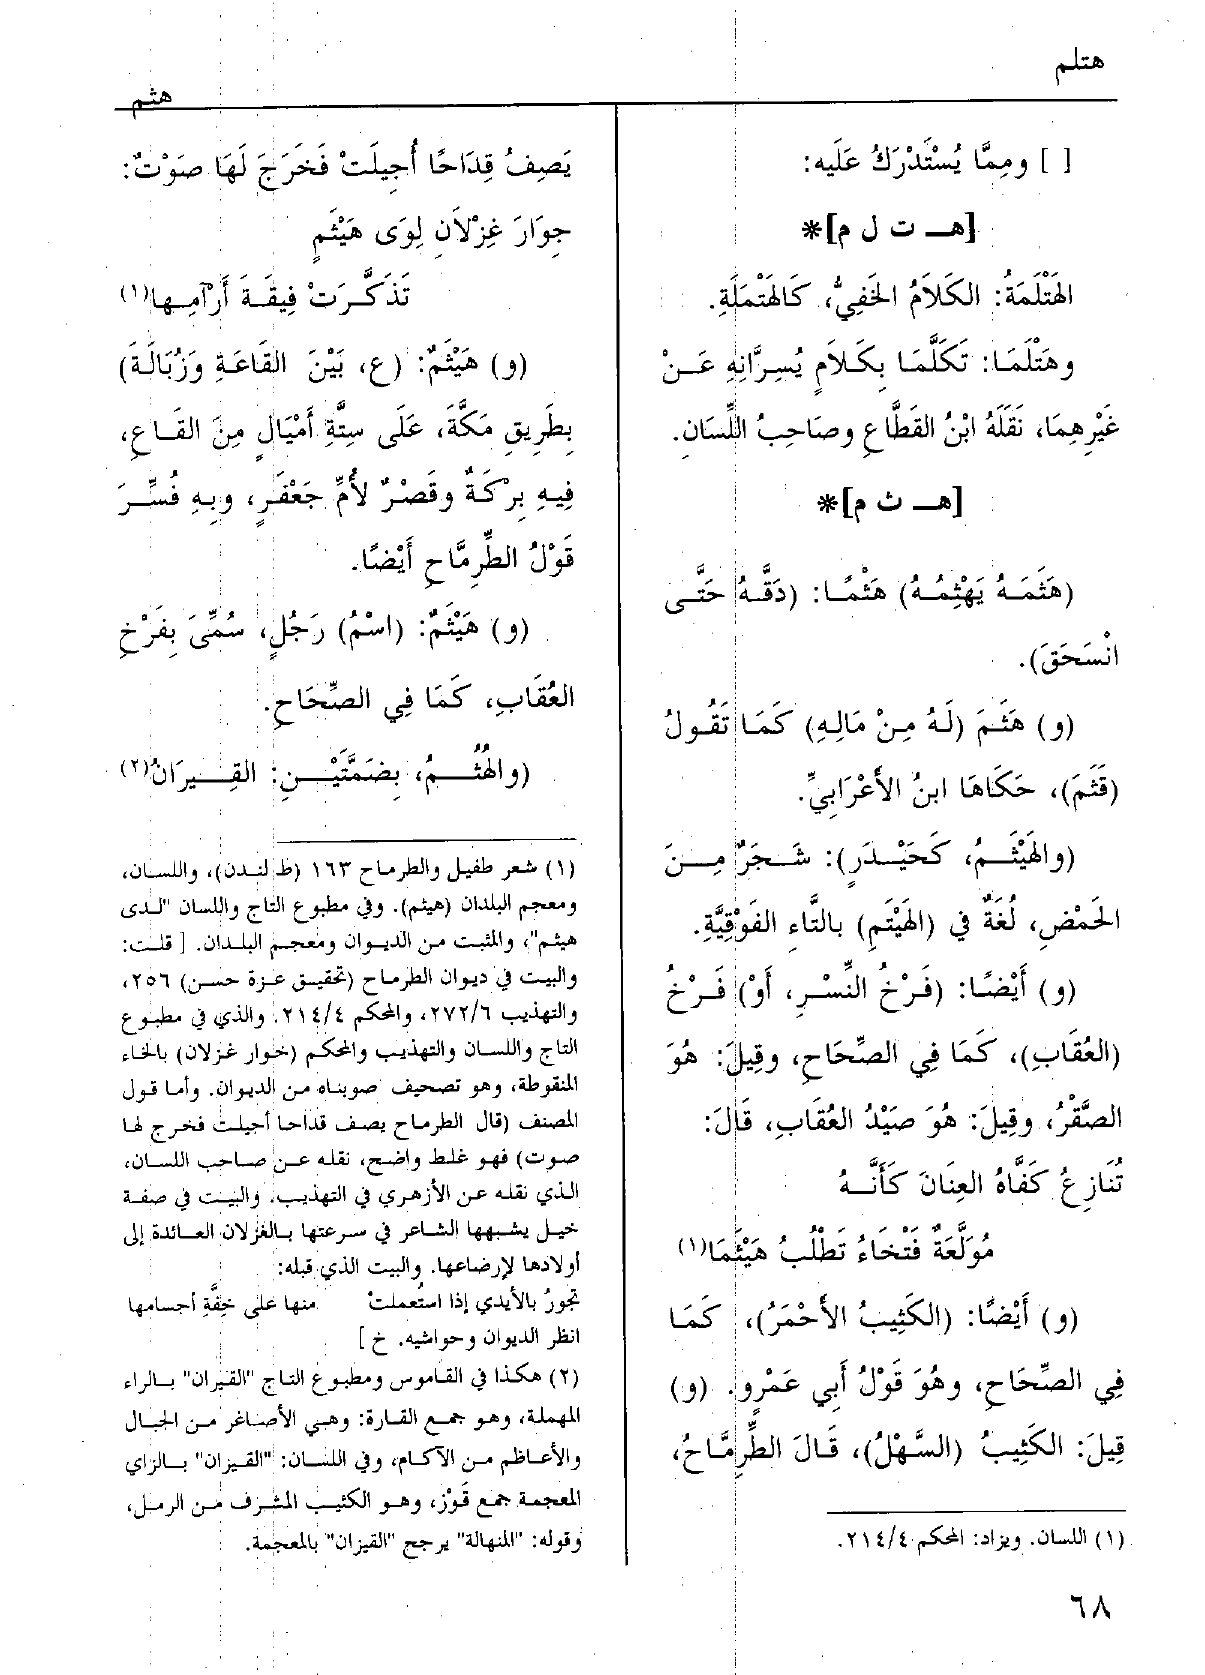 هتلم
هثم
[ ] ومِمَّا يُسْتَدْرَكُ عَلَيه:
[هـ ت ل م]*
الهَتْلَمَةُ: الكَلاَمُ الخَفِيُّ، كَالهَتْمَلَةِ.
وهَتْلَمَا: تَكَلَّمَا بِكَلاَمٍ يُسِرَّانِهِ عَنْ
غَيْرِهِمَا، نَقَلَهُ ابْنُ القَطَّاعِ وصَاحِبُ اللِّسَانِ.
[هـ ث م]*
(هَثَمَهُ يَهْثِمُهُ) هَثْمًا: (دَقَّهُ حَتَّى
انْسَحَقَ).
(و) هَثَمَ (لَهُ مِنْ مَالِهِ) كَمَا تَقُولُ
(قَثَمَ)، حَكَاهَا ابنُ الأَعْرَابِيِّ.
(والهَيْثَمُ، كَحَيْدَرٍ): شَجَرٌ مِنَ
الحَمْضِ، لُغَةٌ في (الهَيْتَمِ) بالتَّاءِ الفَوْقِيَّةِ.
(و) أَيْضًا: (فَرْخُ النَّسْرِ، أَوْ) فَرْخُ
(العُقَابِ)، كَمَا فِي الصِّحَاحِ، وقِيلَ: هُوَ
الصَّقْرُ، وقِيلَ: هُوَ صَيْدُ العُقَابِ، قَالَ:
تُنَازِعُ كَفَّاهُ العِنَانَ كَأَنَّهُ
مُوَلَّعَةٌ فَتْخَاءُ تَطْلُبُ هَيْثَمَا(١)
(و) أَيْضًا: (الكَثِيبُ الأَحْمَرُ)، كَمَا
فِي الصِّحَاحِ، وهُوَ قَوْلُ أَبي عَمْرٍو. (و)
قِيلَ: الكَثِيبُ (السَّهْلُ)، قَالَ الطِّرِمَّاحُ،
(١) اللسان. ويزاد: المحكم ٢١٤/٤.
يَصِفُ قِدَاحًا أُجِيلَتْ فَخَرَجَ لَهَا صَوْتٌ:
جِوَارَ غِزْلاَنِ لِوَى هَيْثَمٍ
تَذَكَّرَتْ فِيقَةَ أَرْآمِهَا(١)
(و) هَيْثَمٌ: (ع، بَيْنَ القَاعَةِ وَزُبَالَةَ)
بِطَرِيقِ مَكَّةَ، عَلَى سِتَّةِ أَمْيَالٍ مِنَ القَاعِ،
فِيهِ بِرْكَةٌ وقَصْرٌ لأُمِّ جَعْفَرٍ، وبِهِ فُسِّرَ
قَوْلُ الطِّرِمَّاحِ أَيْضًا.
(و) هَيْثَمٌ: (اسْمُ) رَجُلٍ، سُمِّيَ بِفَرْخِ
العُقَابِ، كَمَا فِي الصِّحَاحِ.
(والهُثُمُ، بِضَمَّتَيْنِ: القِيرَانُ(٢)
(١) شعر طفيل والطرماح ١٦٣ (ط لندن)، واللسان،
ومعجم البلدان (هيثم). وفي مطبوع التاج واللسان "لدى
هيثم"، والمثبت من الديوان ومعجم البلدان. [ قلت:
والبيت في ديوان الطرماح (تحقيق عزة حسن) ٢٥٦،
والتهذيب ٢٧٢/٦، والمحكم ٢١٤/٤. والذي في مطبوع
التاج واللسان والتهذيب والمحكم (خوار غزلان) بالخاء
المنقوطة، وهو تصحيف صوبناه من الديوان. وأما قول
المصنف (قال الطرماح يصف قداحا أجيلت فخرج لها
صوت) فهو غلط واضح، نقله عن صاحب اللسان،
الذي نقله عن الأزهري في التهذيب. والبيت في صفة
خيل يشبهها الشاعر في سرعتها بالغزلان العائدة إلى
أولادها لإرضاعها. والبيت الذي قبله:
تجورُ بالأيدي إذا استُعملتْ منها على خفَّةِ أجسامها
انظر الديوان وحواشيه. خ ]
(٢) هكذا في القاموس ومطبوع التاج "القيران" بالراء
المهملة، وهو جمع القارة: وهي الأصاغر من الجبال
والأعاظم من الآكام، وفي اللسان: "القيزان" بالزاي
المعجمة جمع قَوْز، وهو الكثيب المشرف من الرمل،
وقوله: "المنهالة" يرجح "القيزان" بالمعجمة.
٦٨